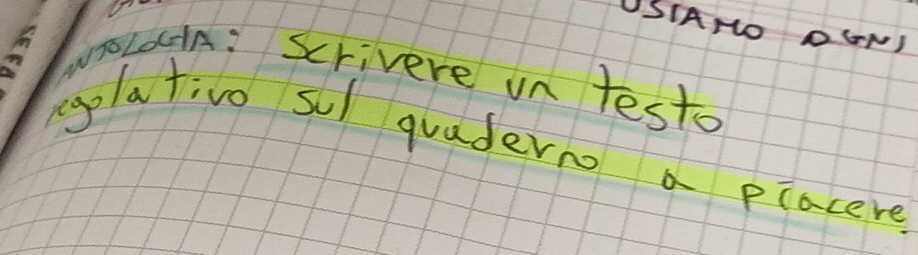 USIAMO OGNI
ANTOLOGIA: Scrivere un testo
regolativo sul quaderno a piacere.